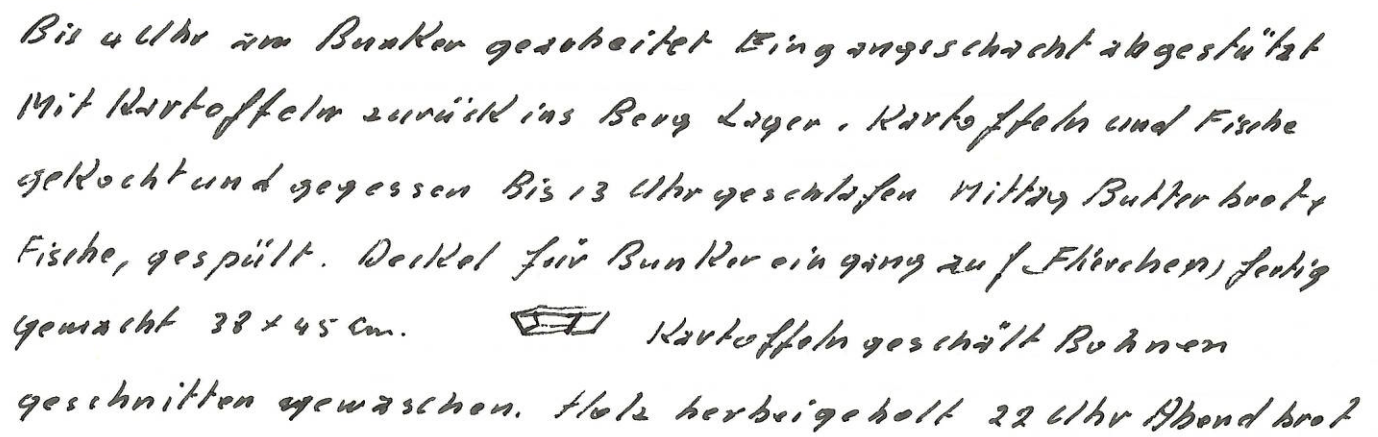 Bis 4 Uhr am Bunker gearbeitet Eingangsschacht abgestützt
Mit Kartoffeln zurück ins Berg Lager. Kartoffeln und Fische
gekocht und gegessen Bis 13 Uhr geschlafen Mittag Butterbrot +
Fische, gespült. Deckel für Bunkereingang auf fertig
gemacht 38 x 45 cm. Kartoffeln geschält Bohnen
geschnitten gewaschen. Holz herbeigeholt 22 Uhr Abendbrot